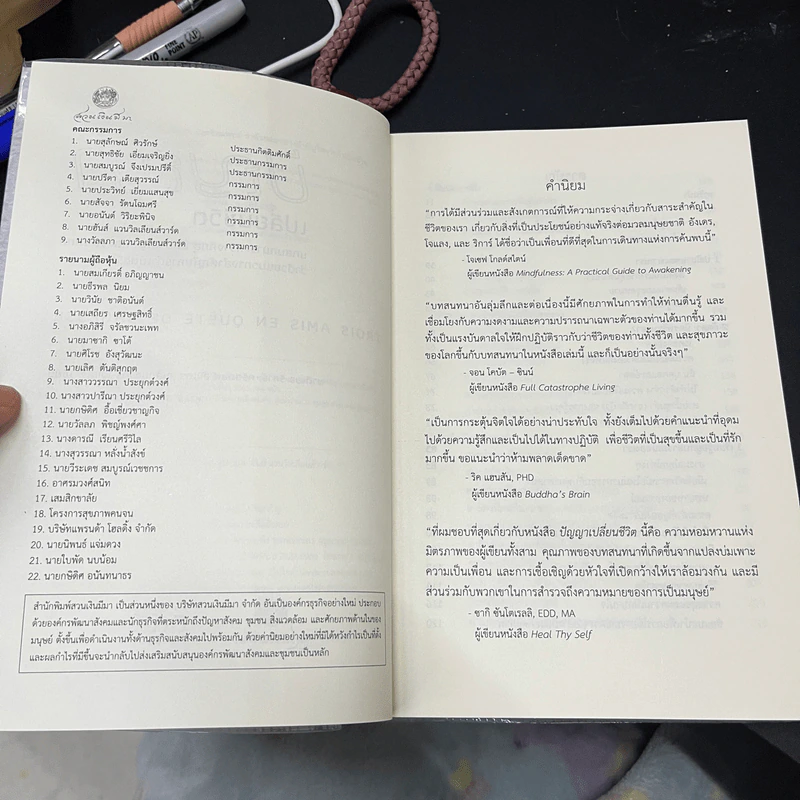 FINE POINT
สวนเงินมีมา
คณะกรรมการ
1. นายสุลักษณ์ ศิวรักษ์ ประธานกิตติมศักดิ์
2. นายสุทธิชัย เอี่ยมเจริญยิ่ง ประธานกรรมการ
3. นายสมบูรณ์ จึงเปรมปรีดิ์ ประธานกรรมการ
4. นายปรีดา เตียสุวรรณ์ กรรมการ
5. นายประวิทย์ เยี่ยมแสนสุข กรรมการ
6. นายสัจจา รัตนโฉมศรี กรรมการ
7. นายอนันต์ วิริยะพินิจ กรรมการ
8. นายฮันส์ แวนวิลเลียนส์วาร์ด กรรมการ
9. นางวัลลภา แวนวิลเลียนส์วาร์ด กรรมการ
รายนามผู้ถือหุ้น
1. นายสมเกียรติ์ อภิญญาชน
2. นายธีรพล นิยม
3. นายวินัย ชาติอนันต์
4. นายเสถียร เศรษฐสิทธิ์
5. นางอภิสิรี จรัลชวนะเพท
6. นายมาซากิ ซาโต้
7. นายศิโรช อังสุวัฒนะ
8. นายเลิศ ตันติสุกฤต
9. นางสาววรรณา ประยุกต์วงศ์
10. นางสาวปารีณา ประยุกต์วงศ์
11. นายกษิดิศ อื้อเชี่ยวชาญกิจ
12. นายวัลลภ พิชญ์พงศ์ศา
13. นางดารณี เรียนศรีวิไล
14. นางสุวรรณา หลั่งน้ำสังข์
15. นายวีระเดช สมบูรณ์เวชชการ
16. อาศรมวงศ์สนิท
17. เสมสิกขาลัย
18. โครงการสุขภาพคนจน
19. บริษัทแพรนด้า โฮลดิ้ง จำกัด
20. นายนิพนธ์ แจ่มดวง
21. นายใบพัด นบน้อม
22. นายกษิดิศ อนันทนาธร
สำนักพิมพ์สวนเงินมีมา เป็นส่วนหนึ่งของ บริษัทสวนเงินมีมา จำกัด อันเป็นองค์กรธุรกิจอย่างใหม่ ประกอบ
ด้วยองค์กรพัฒนาสังคมและนักธุรกิจที่ตระหนักถึงปัญหาสังคม ชุมชน สิ่งแวดล้อม และศักยภาพด้านในของ
มนุษย์ ตั้งขึ้นเพื่อดำเนินงานทั้งด้านธุรกิจและสังคมไปพร้อมกัน ด้วยค่านิยมอย่างใหม่ที่มิได้หวังกำไรเป็นที่ตั้ง
และผลกำไรที่มีขึ้นจะนำกลับไปส่งเสริมสนับสนุนองค์กรพัฒนาสังคมและชุมชนเป็นหลัก
คำนิยม
“การได้มีส่วนร่วมและสังเกตการณ์ที่ให้ความกระจ่างเกี่ยวกับสาระสำคัญใน
ชีวิตของเรา เกี่ยวกับสิ่งที่เป็นประโยชน์อย่างแท้จริงต่อมวลมนุษยชาติ อังเดร,
โจแลง, และ ริการ์ ได้ชื่อว่าเป็นเพื่อนที่ดีที่สุดในการเดินทางแห่งการค้นพบนี้”
- โจเซฟ โกลด์สไตน์
ผู้เขียนหนังสือ Mindfulness: A Practical Guide to Awakening
“บทสนทนาอันลุ่มลึกและต่อเนื่องนี้มีศักยภาพในการทำให้ท่านตื่นรู้ และ
เชื่อมโยงกับความงดงามและความปรารถนาเฉพาะตัวของท่านได้มากขึ้น รวม
ทั้งเป็นแรงบันดาลใจให้ฝึกปฏิบัติราวกับว่าชีวิตของท่านทั้งชีวิต และสุขภาวะ
ของโลกขึ้นกับบทสนทนาในหนังสือเล่มนี้ และก็เป็นอย่างนั้นจริงๆ”
- จอน โคบัด – ซินน์
ผู้เขียนหนังสือ Full Catastrophe Living
“เป็นการกระตุ้นจิตใจได้อย่างน่าประทับใจ ทั้งยังเต็มไปด้วยคำแนะนำที่อุดม
ไปด้วยความรู้สึกและเป็นไปได้ในทางปฏิบัติ เพื่อชีวิตที่เป็นสุขขึ้นและเป็นที่รัก
มากขึ้น ขอแนะนำว่าห้ามพลาดเด็ดขาด”
- ริค แฮนสัน, PHD
ผู้เขียนหนังสือ Buddha's Brain
“ที่ผมชอบที่สุดเกี่ยวกับหนังสือ ปัญญาเปลี่ยนชีวิต นี้คือ ความหอมหวานแห่ง
มิตรภาพของผู้เขียนทั้งสาม คุณภาพของบทสนทนาที่เกิดขึ้นจากแปลงบ่มเพาะ
ความเป็นเพื่อน และการเชื้อเชิญด้วยหัวใจที่เปิดกว้างให้เราล้อมวงกัน และมี
ส่วนร่วมกับพวกเขาในการสำรวจถึงความหมายของการเป็นมนุษย์”
- ซากิ ซันโตเรลลิ, EDD, MA
ผู้เขียนหนังสือ Heal Thy Self